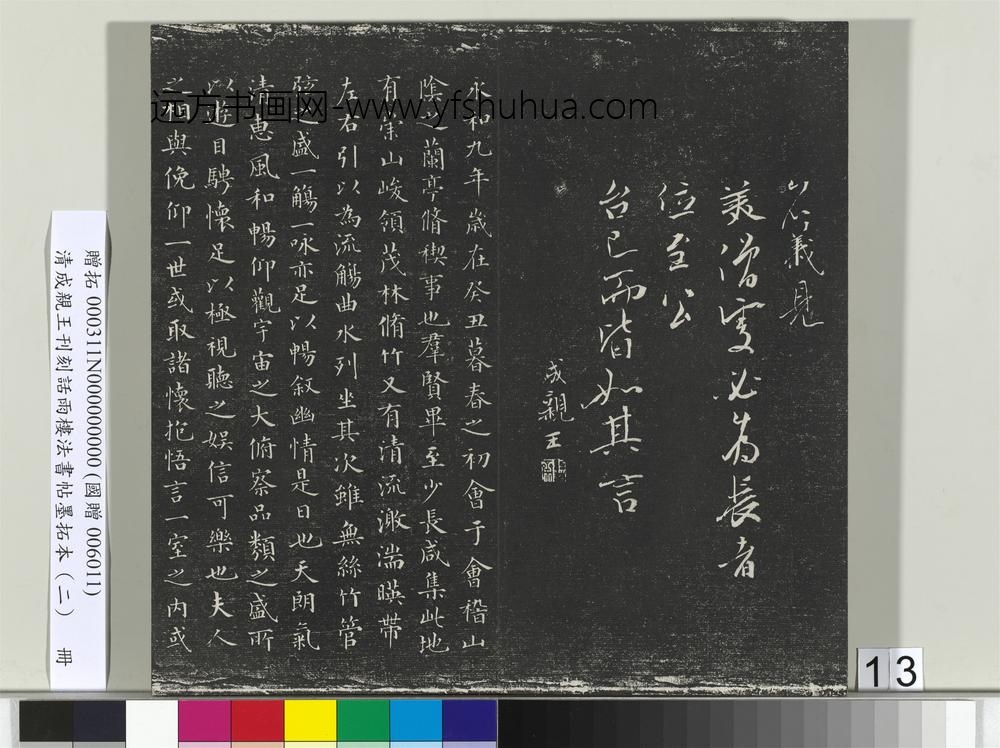 義見
美僧虔必為長者
位至公
台已而皆如其言
成親王
永和九年歲在癸丑暮春之初會于會稽山
陰之蘭亭脩禊事也羣賢畢至少長咸集此地
有崇山峻領茂林脩竹又有清流激湍暎帶
左右引以為流觴曲水列坐其次雖無絲竹管
弦之盛一觴一詠亦足以暢敘幽情是日也天朗氣
清惠風和暢仰觀宇宙之大俯察品類之盛所
以遊目騁懷足以極視聽之娛信可樂也夫人
之相與俛仰一世或取諸懷抱悟言一室之內或
远方书画网-www.yfshuhua.com
贈拓 000311N000000000 (國贈 006011)
清成親王刊刻話雨樓法書帖墨拓本（二） 冊
13